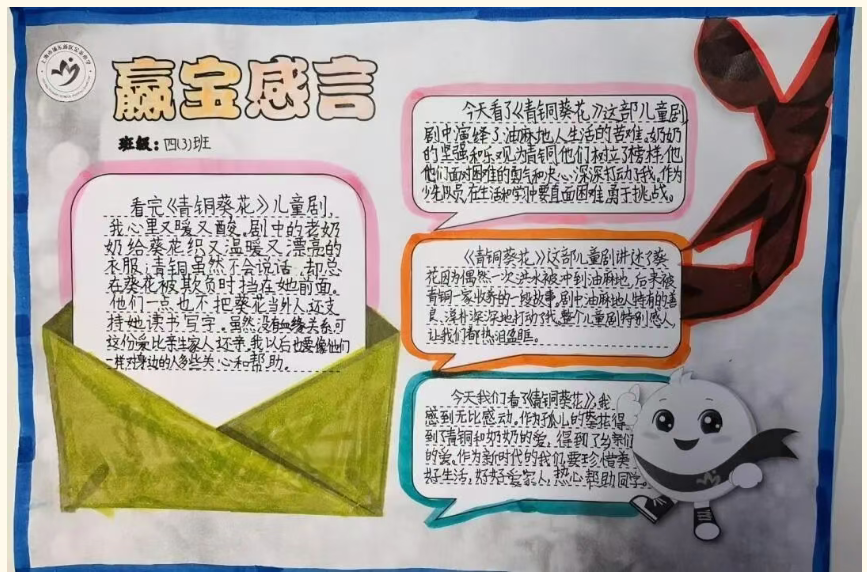 赢宝感言
班级：四(3)班
看完《青铜葵花》儿童剧，
我心里又暖又酸。剧中的老奶
奶给葵花织又温暖又漂亮的
衣服；青铜虽然不会说话，却总
在葵花被欺负时挡在她前面。
他们一点也不把葵花当外人还支
持她读书写字。虽然没有血缘关系，可
这份爱比亲生家人还亲。我以后也要像他们
一样对身边的人多些关心和帮助。
今天看了《青铜葵花》这部儿童剧
剧中演绎了油麻地人生活的苦难，奶奶
的坚强和乐观为青铜他们树立了榜样，他
他们面对困难的勇气和决心深深打动了我。作为
少先队员，在生活和学习中要直面困难，勇于挑战。
《青铜葵花》这部儿童剧讲述了葵
花因为偶然一次洪水被冲到油麻地，后来被
青铜一家收养的一段故事。剧中油麻地人特有的善
良、淳朴深深地打动了我。整个儿童剧特别感人，
让我们都热泪盈眶。
今天我们看了《青铜葵花》，我
感到无比感动。作为孤儿的葵花得
到了青铜和奶奶的爱，得到了乡亲们
的爱。作为新时代的我们，要珍惜美
好生活，好好爱家人，热心帮助同学。